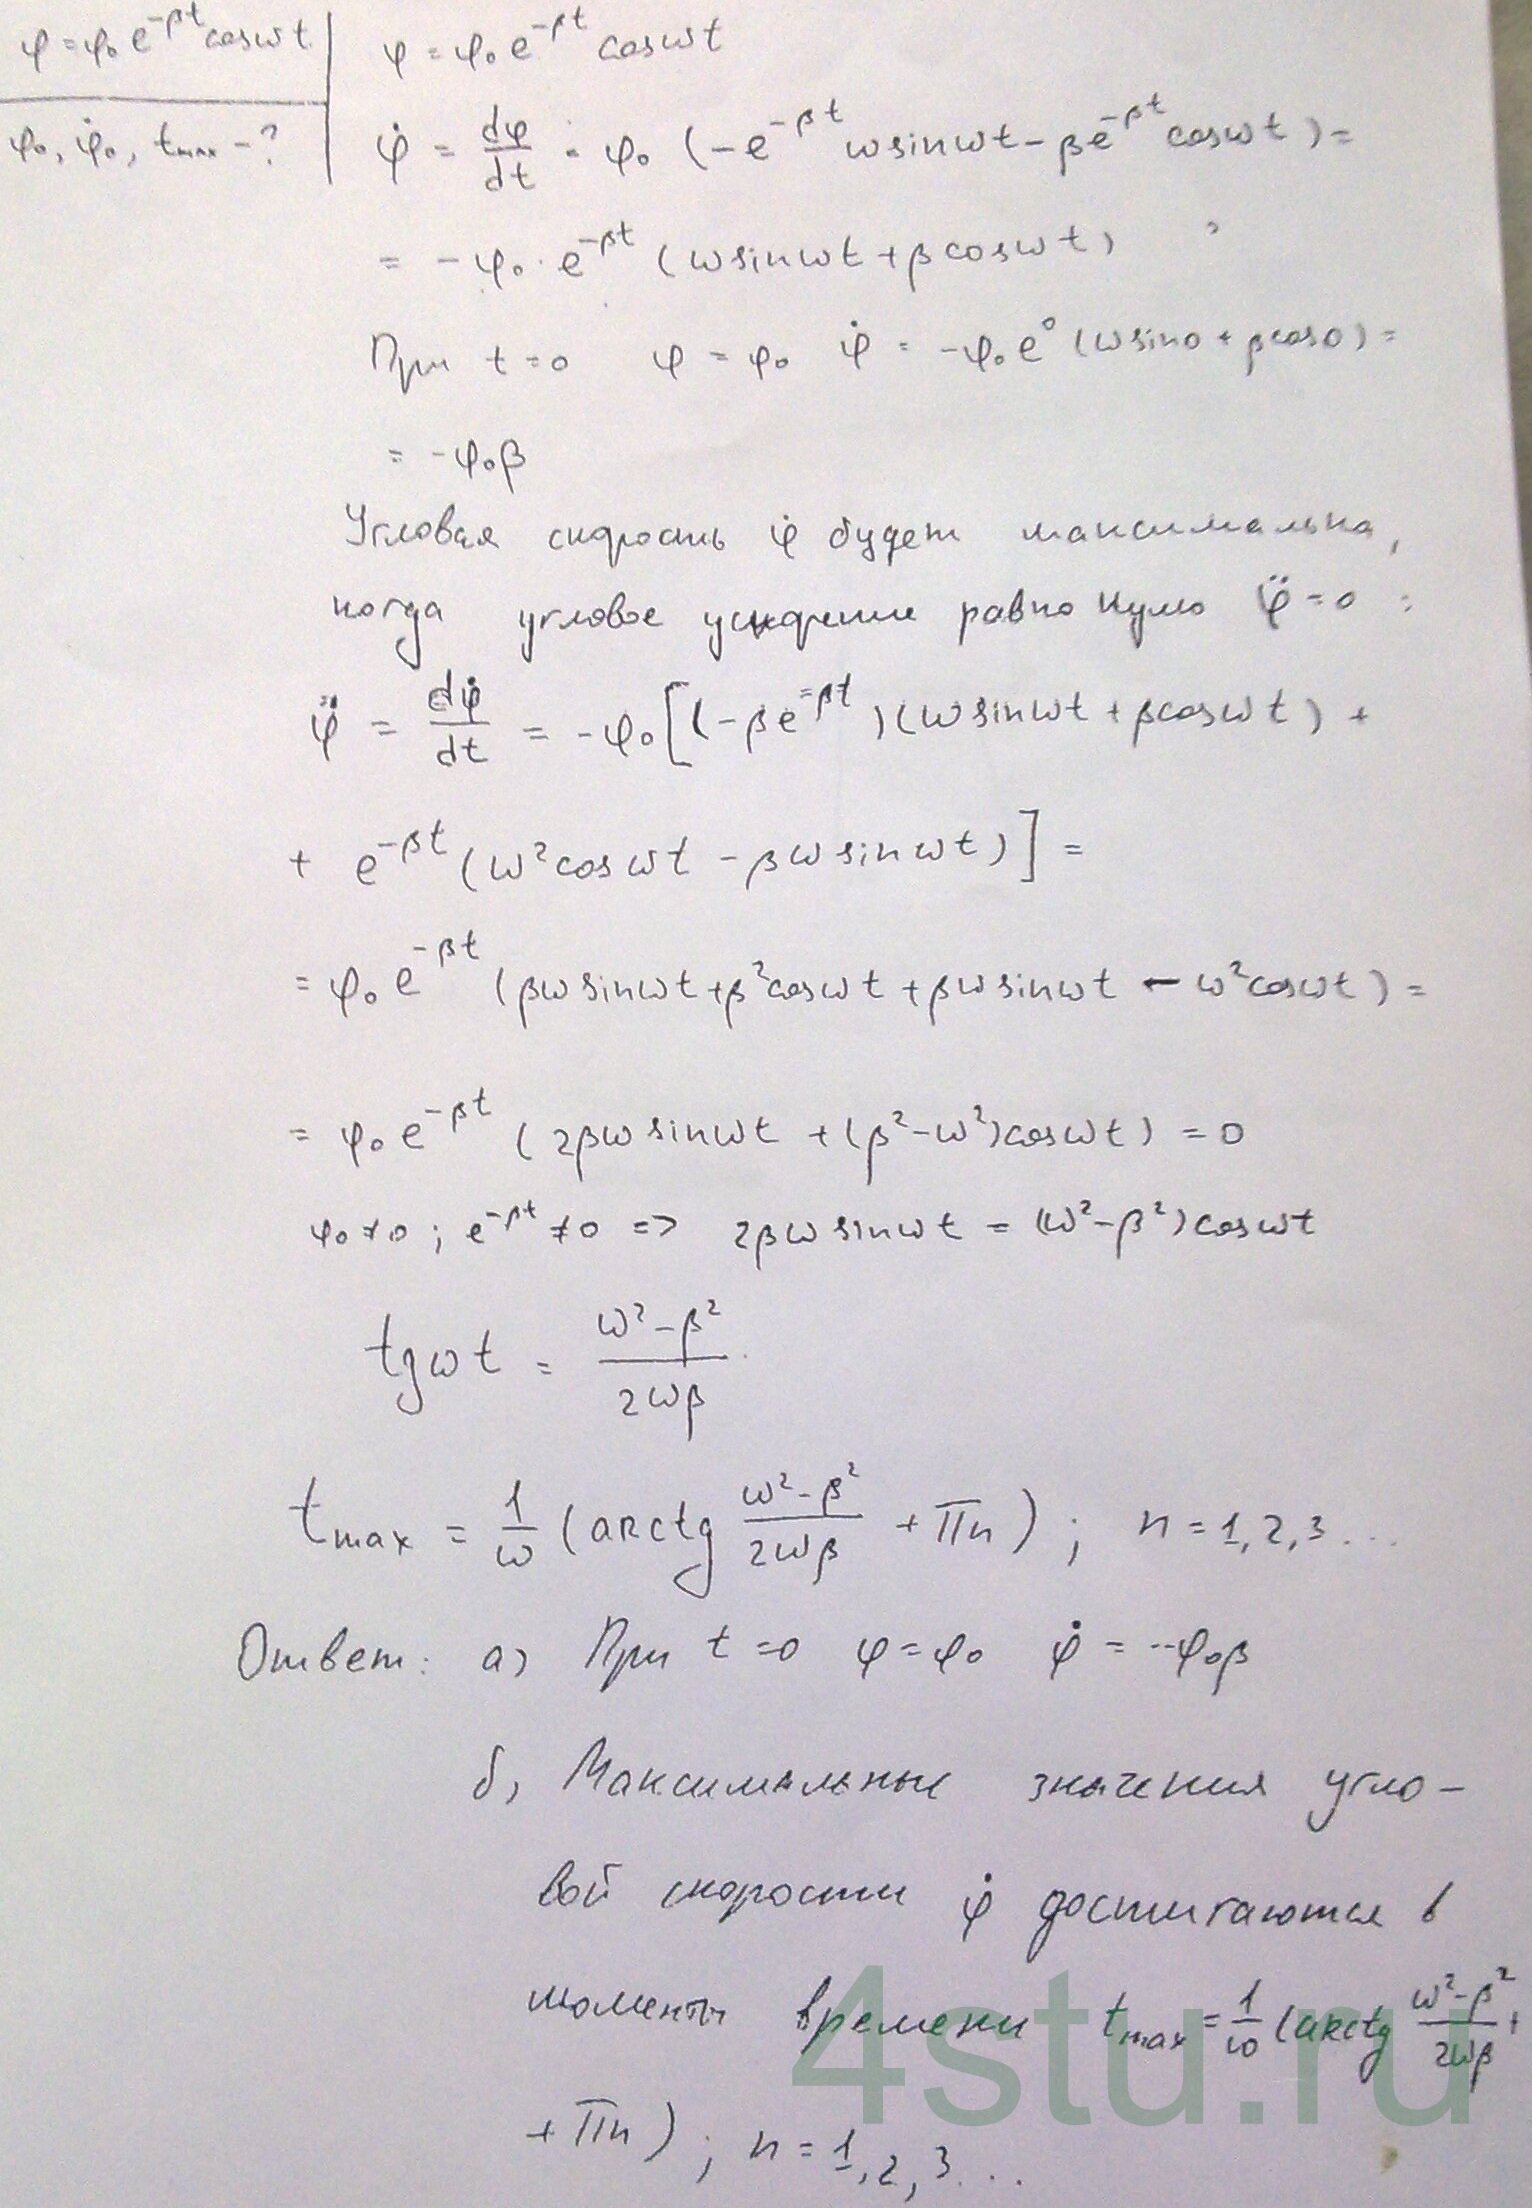 φ = φ₀ e^{-βt} cos ωt
φ₀, φ̇₀, t_max - ?
φ = φ₀ e^{-βt} cos ωt
φ̇ = dφ/dt = φ₀ (-e^{-βt} ω sin ωt - β e^{-βt} cos ωt) =
= -φ₀ · e^{-βt} (ω sin ωt + β cos ωt)
При t = 0 φ = φ₀ φ̇ = -φ₀ e⁰ (ω sin 0 + β cos 0) =
= -φ₀β
Угловая скорость φ̇ будет максимальна,
когда угловое ускорение равно нулю φ̈ = 0 :
φ̈ = dφ̇/dt = -φ₀ [(-β e^{-βt}) (ω sin ωt + β cos ωt) +
+ e^{-βt} (ω² cos ωt - βω sin ωt)] =
= φ₀ e^{-βt} (βω sin ωt + β² cos ωt + βω sin ωt - ω² cos ωt) =
= φ₀ e^{-βt} (2βω sin ωt + (β² - ω²) cos ωt) = 0
φ₀ ≠ 0 ; e^{-βt} ≠ 0 => 2βω sin ωt = (ω² - β²) cos ωt
tg ωt = (ω² - β²)/(2ωβ)
t_max = 1/ω (arctg (ω² - β²)/(2ωβ) + πn) ; n = 1, 2, 3 ...
Ответ: а) При t = 0 φ = φ₀ φ̇ = -φ₀β
б) Максимальные значения угло-
вой скорости φ̇ достигаются в
моменты времени t_max = 1/ω (arctg (ω² - β²)/(2ωβ) +
+ πn) ; n = 1, 2, 3 ...
4stu.ru